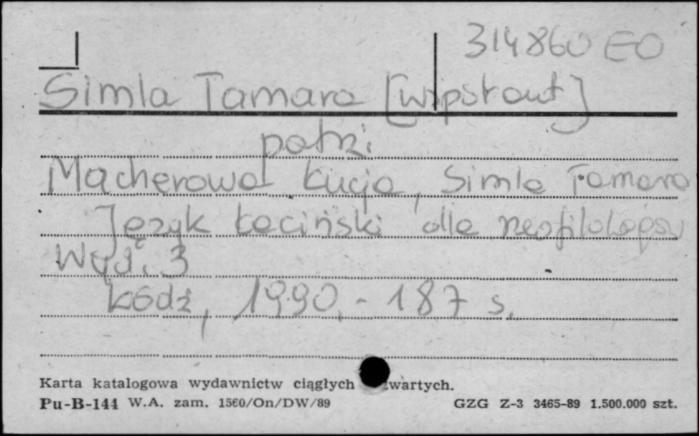 314860 EO
Simla Tamara [współaut]
patrz:
Mącherowa Łucja, Simla Tamara
Język łaciński dla neofilologów
Wyd. 3
Łódź, 1990. - 187 s.
Karta katalogowa wydawnictw ciągłych wartych.
Pu-B-144 W.A. zam. 1560/On/DW/89 GZG Z-3 3465-89 1.500.000 szt.